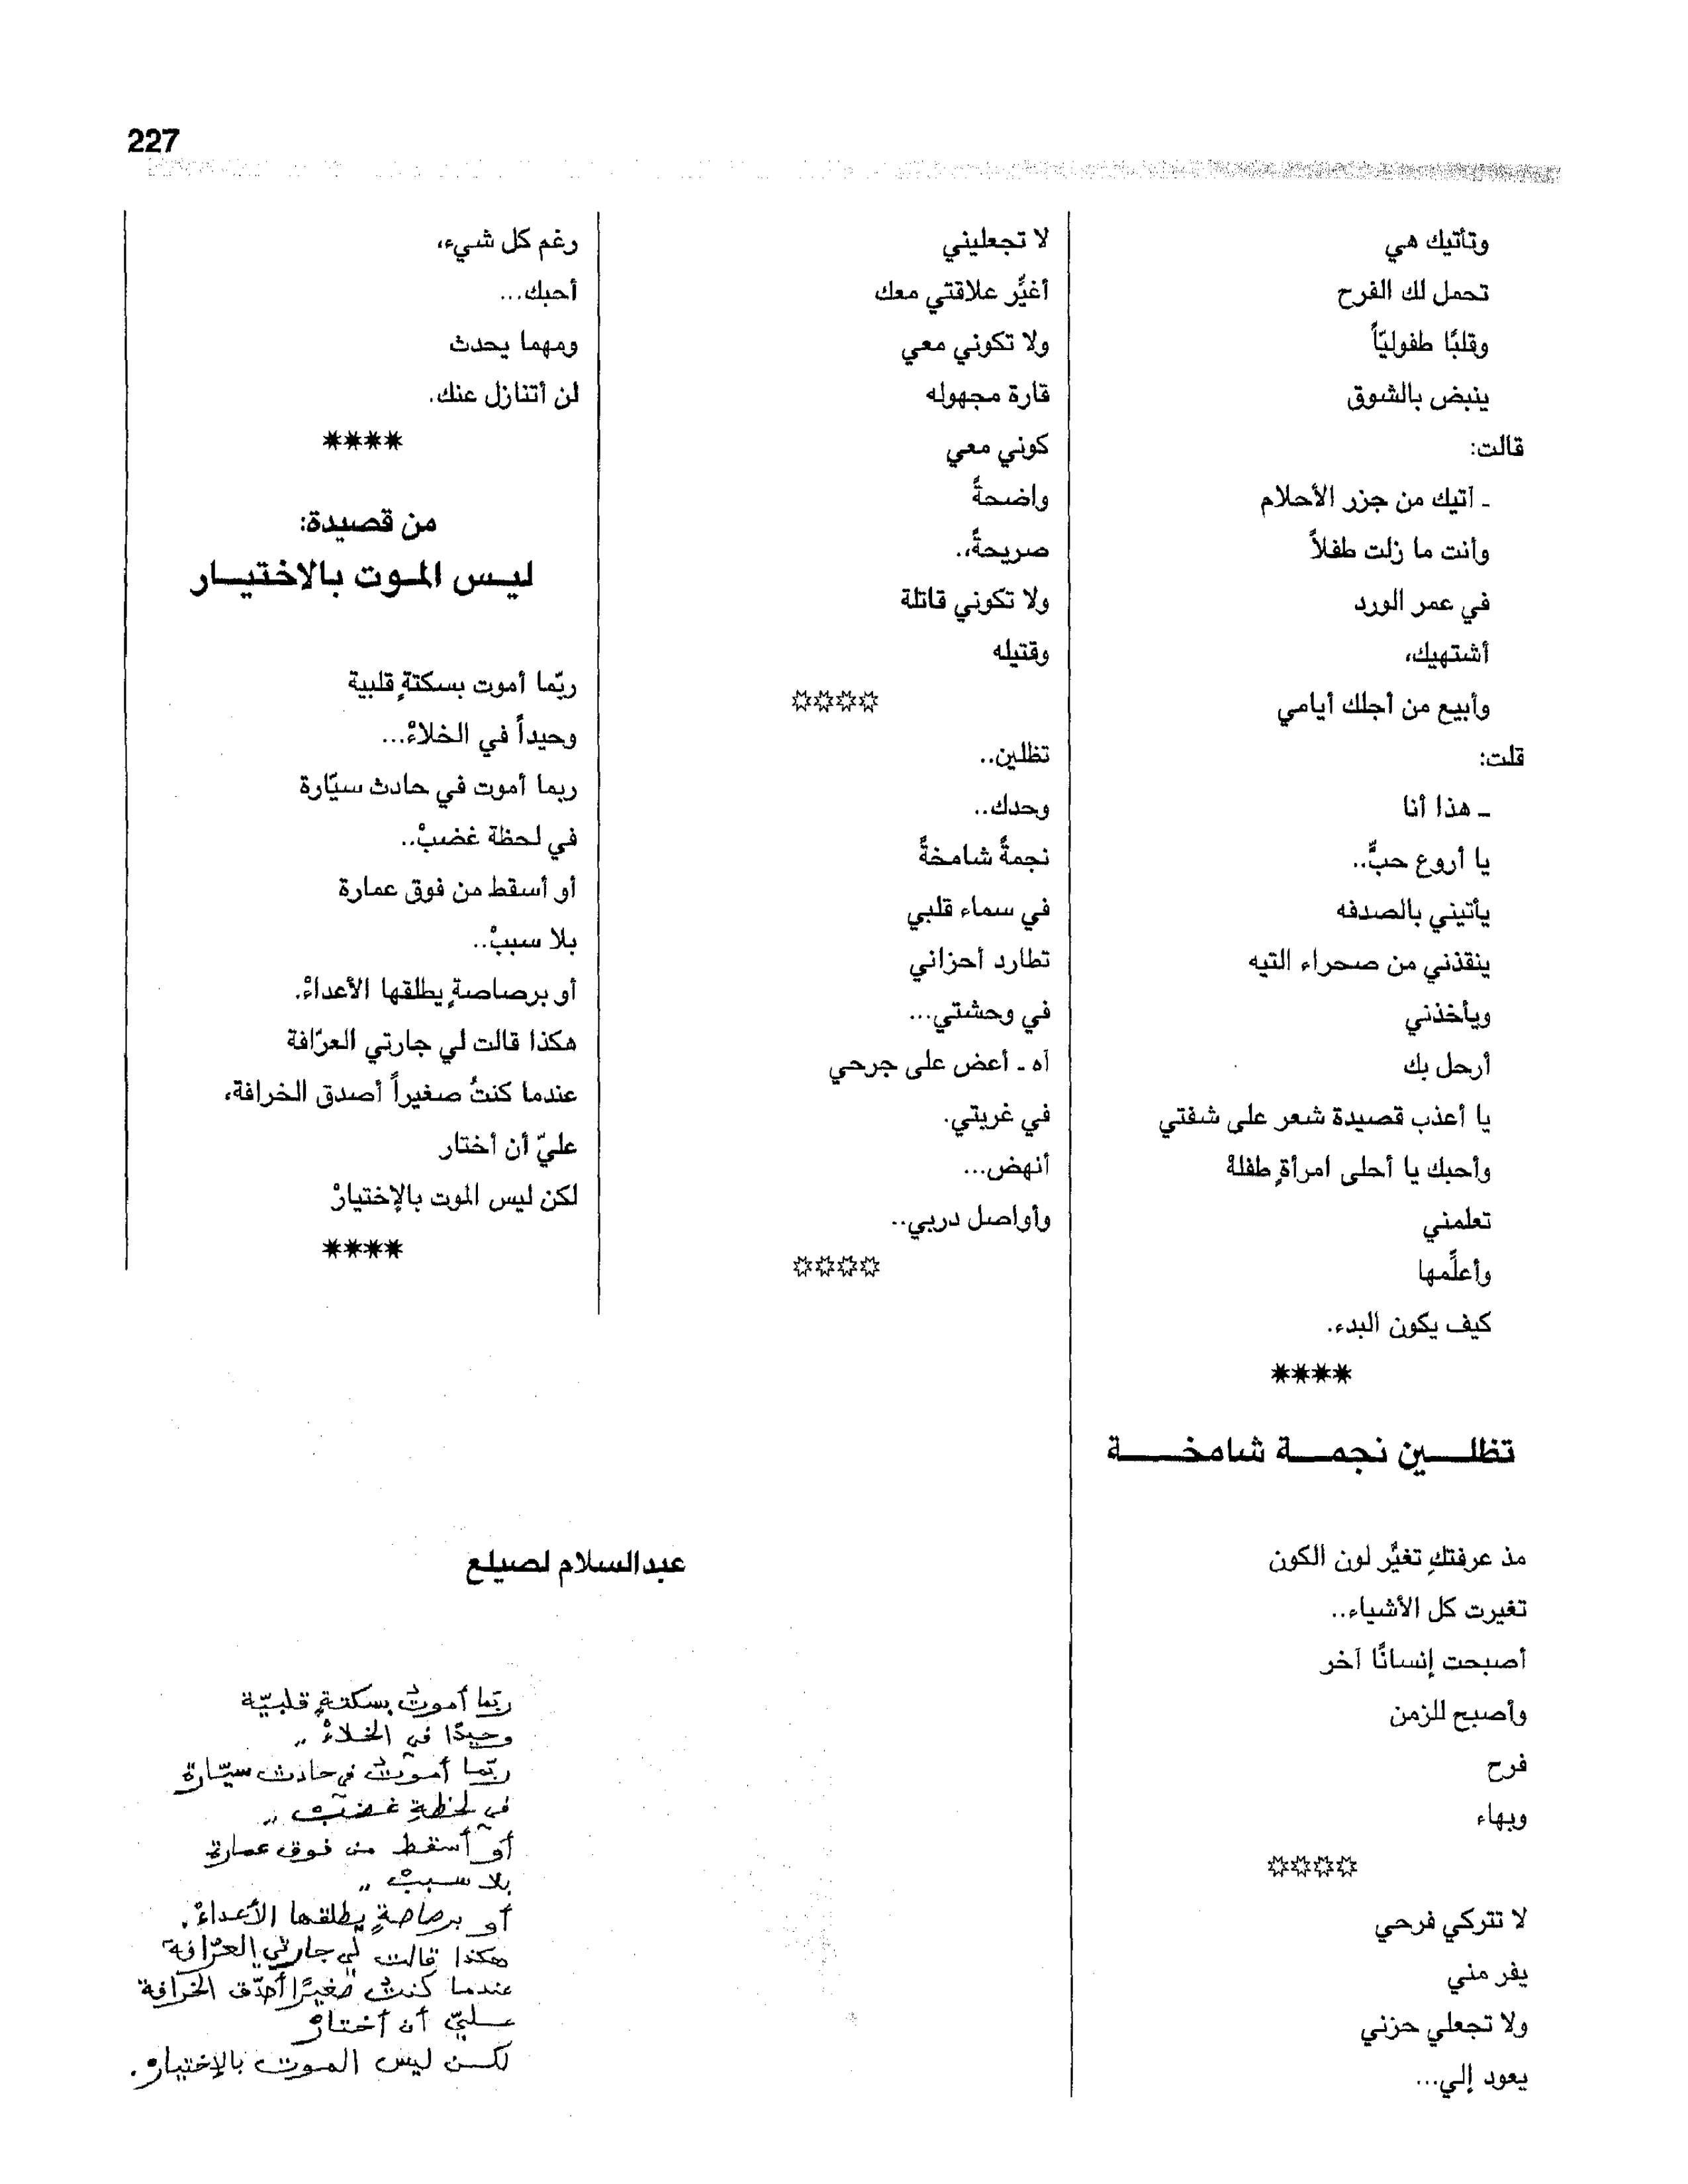 227
وتأتيك هي
تحمل لك الفرح
وقلبًا طفوليّاً
ينبض بالشوق
قالت:
ـ آتيك من جزر الأحلام
وأنت ما زلت طفلاً
في عمر الورد
أشتهيك،
وأبيع من أجلك أيامي
قلت:
ـ هذا أنا
يا أروع حبٍّ..
يأتيني بالصدفه
ينقذني من صحراء التيه
ويأخذني
أرحل بك
يا أعذب قصيدة شعر على شفتي
وأحبك يا أحلى امرأةٍ طفلهْ
تعلمني
وأعلِّمها
كيف يكون البدء.
****
تظلـــين نجمـــة شامخـــــة
مذ عرفتكِ تغيَّر لون الكون
تغيرت كل الأشياء..
أصبحت إنسانًا آخر
وأصبح للزمن
فرح
وبهاء
****
لا تتركي فرحي
يفر مني
ولا تجعلي حزني
يعود إلي...
لا تجعليني
أغيِّر علاقتي معك
ولا تكوني معي
قارة مجهوله
كوني معي
واضحةً
صريحةً،.
ولا تكوني قاتلة
وقتيله
****
تظلين..
وحدك..
نجمةً شامخةً
في سماء قلبي
تطارد أحزاني
في وحشتي...
آه ـ أعض على جرحي
في غربتي.
أنهض...
وأواصل دربي..
****
رغم كل شيء،
أحبك...
ومهما يحدث
لن أتنازل عنك.
****
من قصيدة:
ليـس المـوت بالاختيـــار
ربّما أموت بسكتةٍ قلبية
وحيداً في الخلاءْ...
ربما أموت في حادث سيّارة
في لحظة غضبْ..
أو أسقط من فوق عمارة
بلا سببْ..
أو برصاصةٍ يطلقها الأعداءْ.
هكذا قالت لي جارتي العرّافة
عندما كنتُ صغيراً أصدق الخرافة،
عليّ أن أختار
لكن ليس الموت بالإختيارْ
****
عبدالسلام لصيلع
ربّما أموتُ بسكتةٍ قلبيّة
وحيدًا في الخلاءْ ..
ربّما أموتُ في حادث سيّارة
في لحظةِ غضبْ ..
أو أسقط من فوق عمارة
بلا سببْ ..
أو برصاصةٍ يطلقها الأعداءْ.
هكذا قالت لي جارتي العرّافة
عندما كنتُ صغيرًا أصدّق الخرافة
عليّ أن أختارْ
لكن ليس الموت بالإختيارْ.